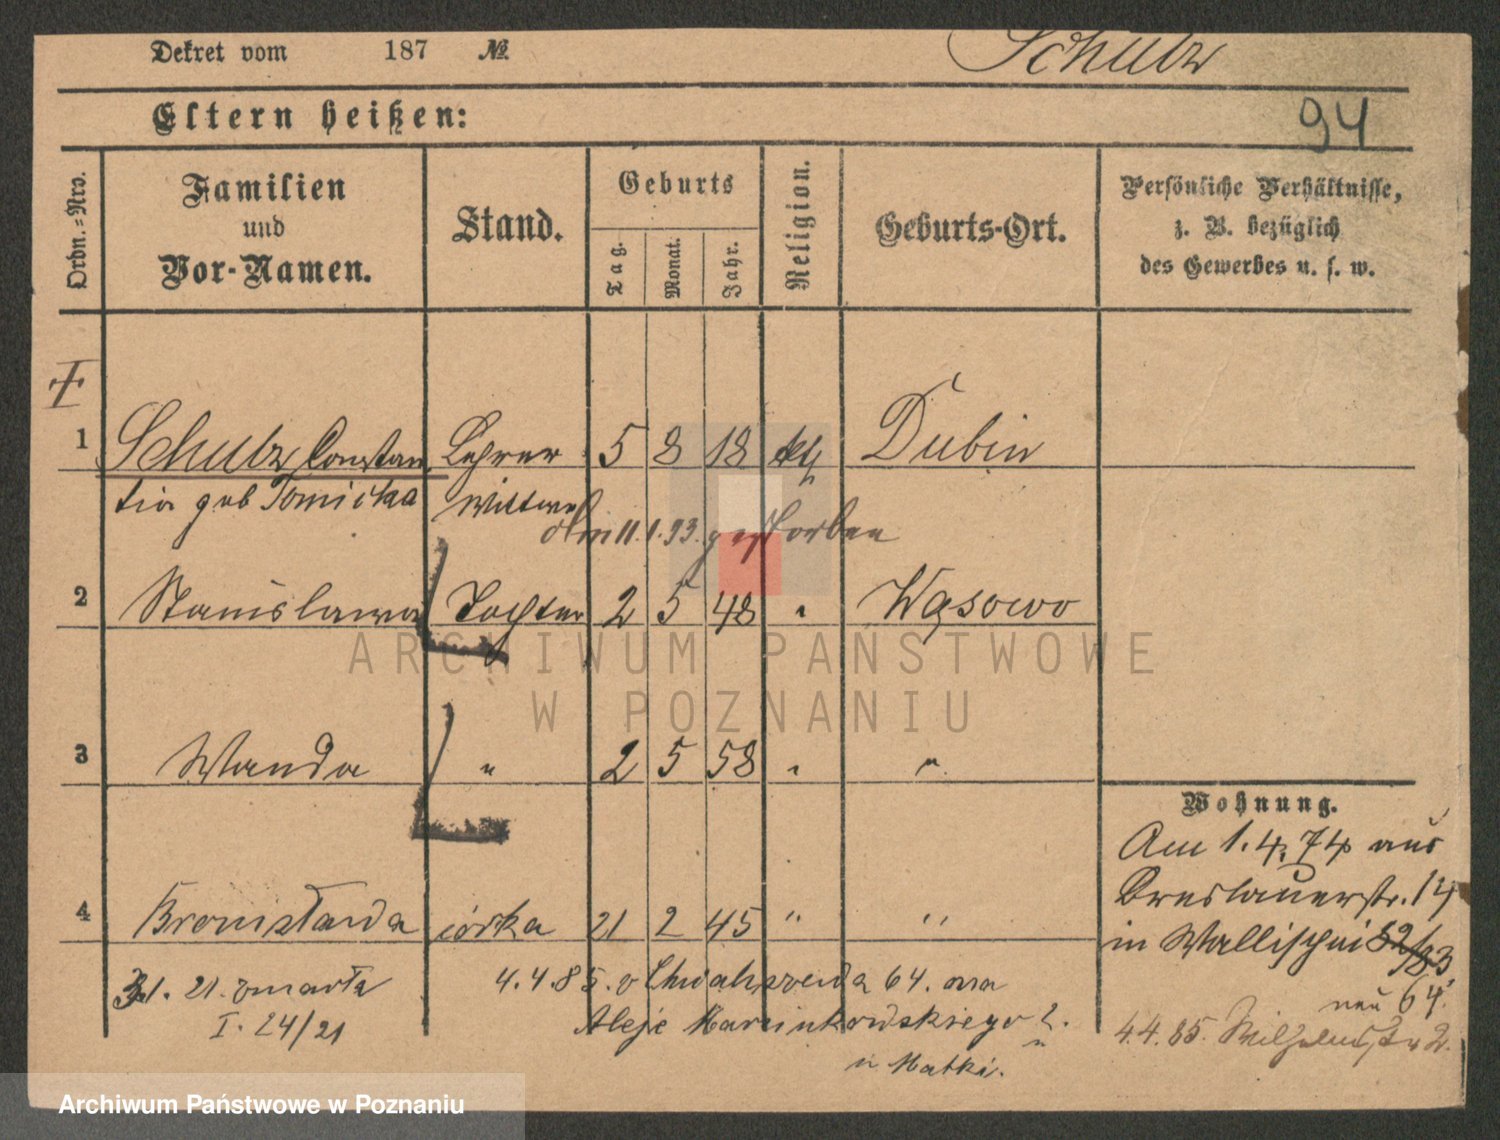 Dekret vom 187 №
Schulz
Eltern heißen:
94
Ordn.=Nro.
Familien
und
Vor-Namen.
Stand.
Geburts
Tag.
Monat.
Jahr.
Religion.
Geburts-Ort.
Persönliche Verhältnisse,
z. B. bezüglich
des Gewerbes u. s. w.
1 Schulz Constan Lehrer 5 8 18 kth Dubin
tia geb Tomicka Wittwe
am 11.1.93. gestorben
2 Stanislawa Tochter 2 5 48 " Wąsowo
3 Wanda " 2 5 58 " "
4 Bronisława córka 21 2 45 " "
Wohnung.
Am 1.4.74 aus
Breslauerstr. 14
in Wallischei 82/83
neu 64.
4.4.85. Wilhelmstr 2.
31. 21. zmarła
I. 24/21
4.4.85. z Chwaliszewa 64. na
Aleje Marcinkowskiego 2.
u Matki.
ARCHIWUM PAŃSTWOWE
W POZNANIU
Archiwum Państwowe w Poznaniu